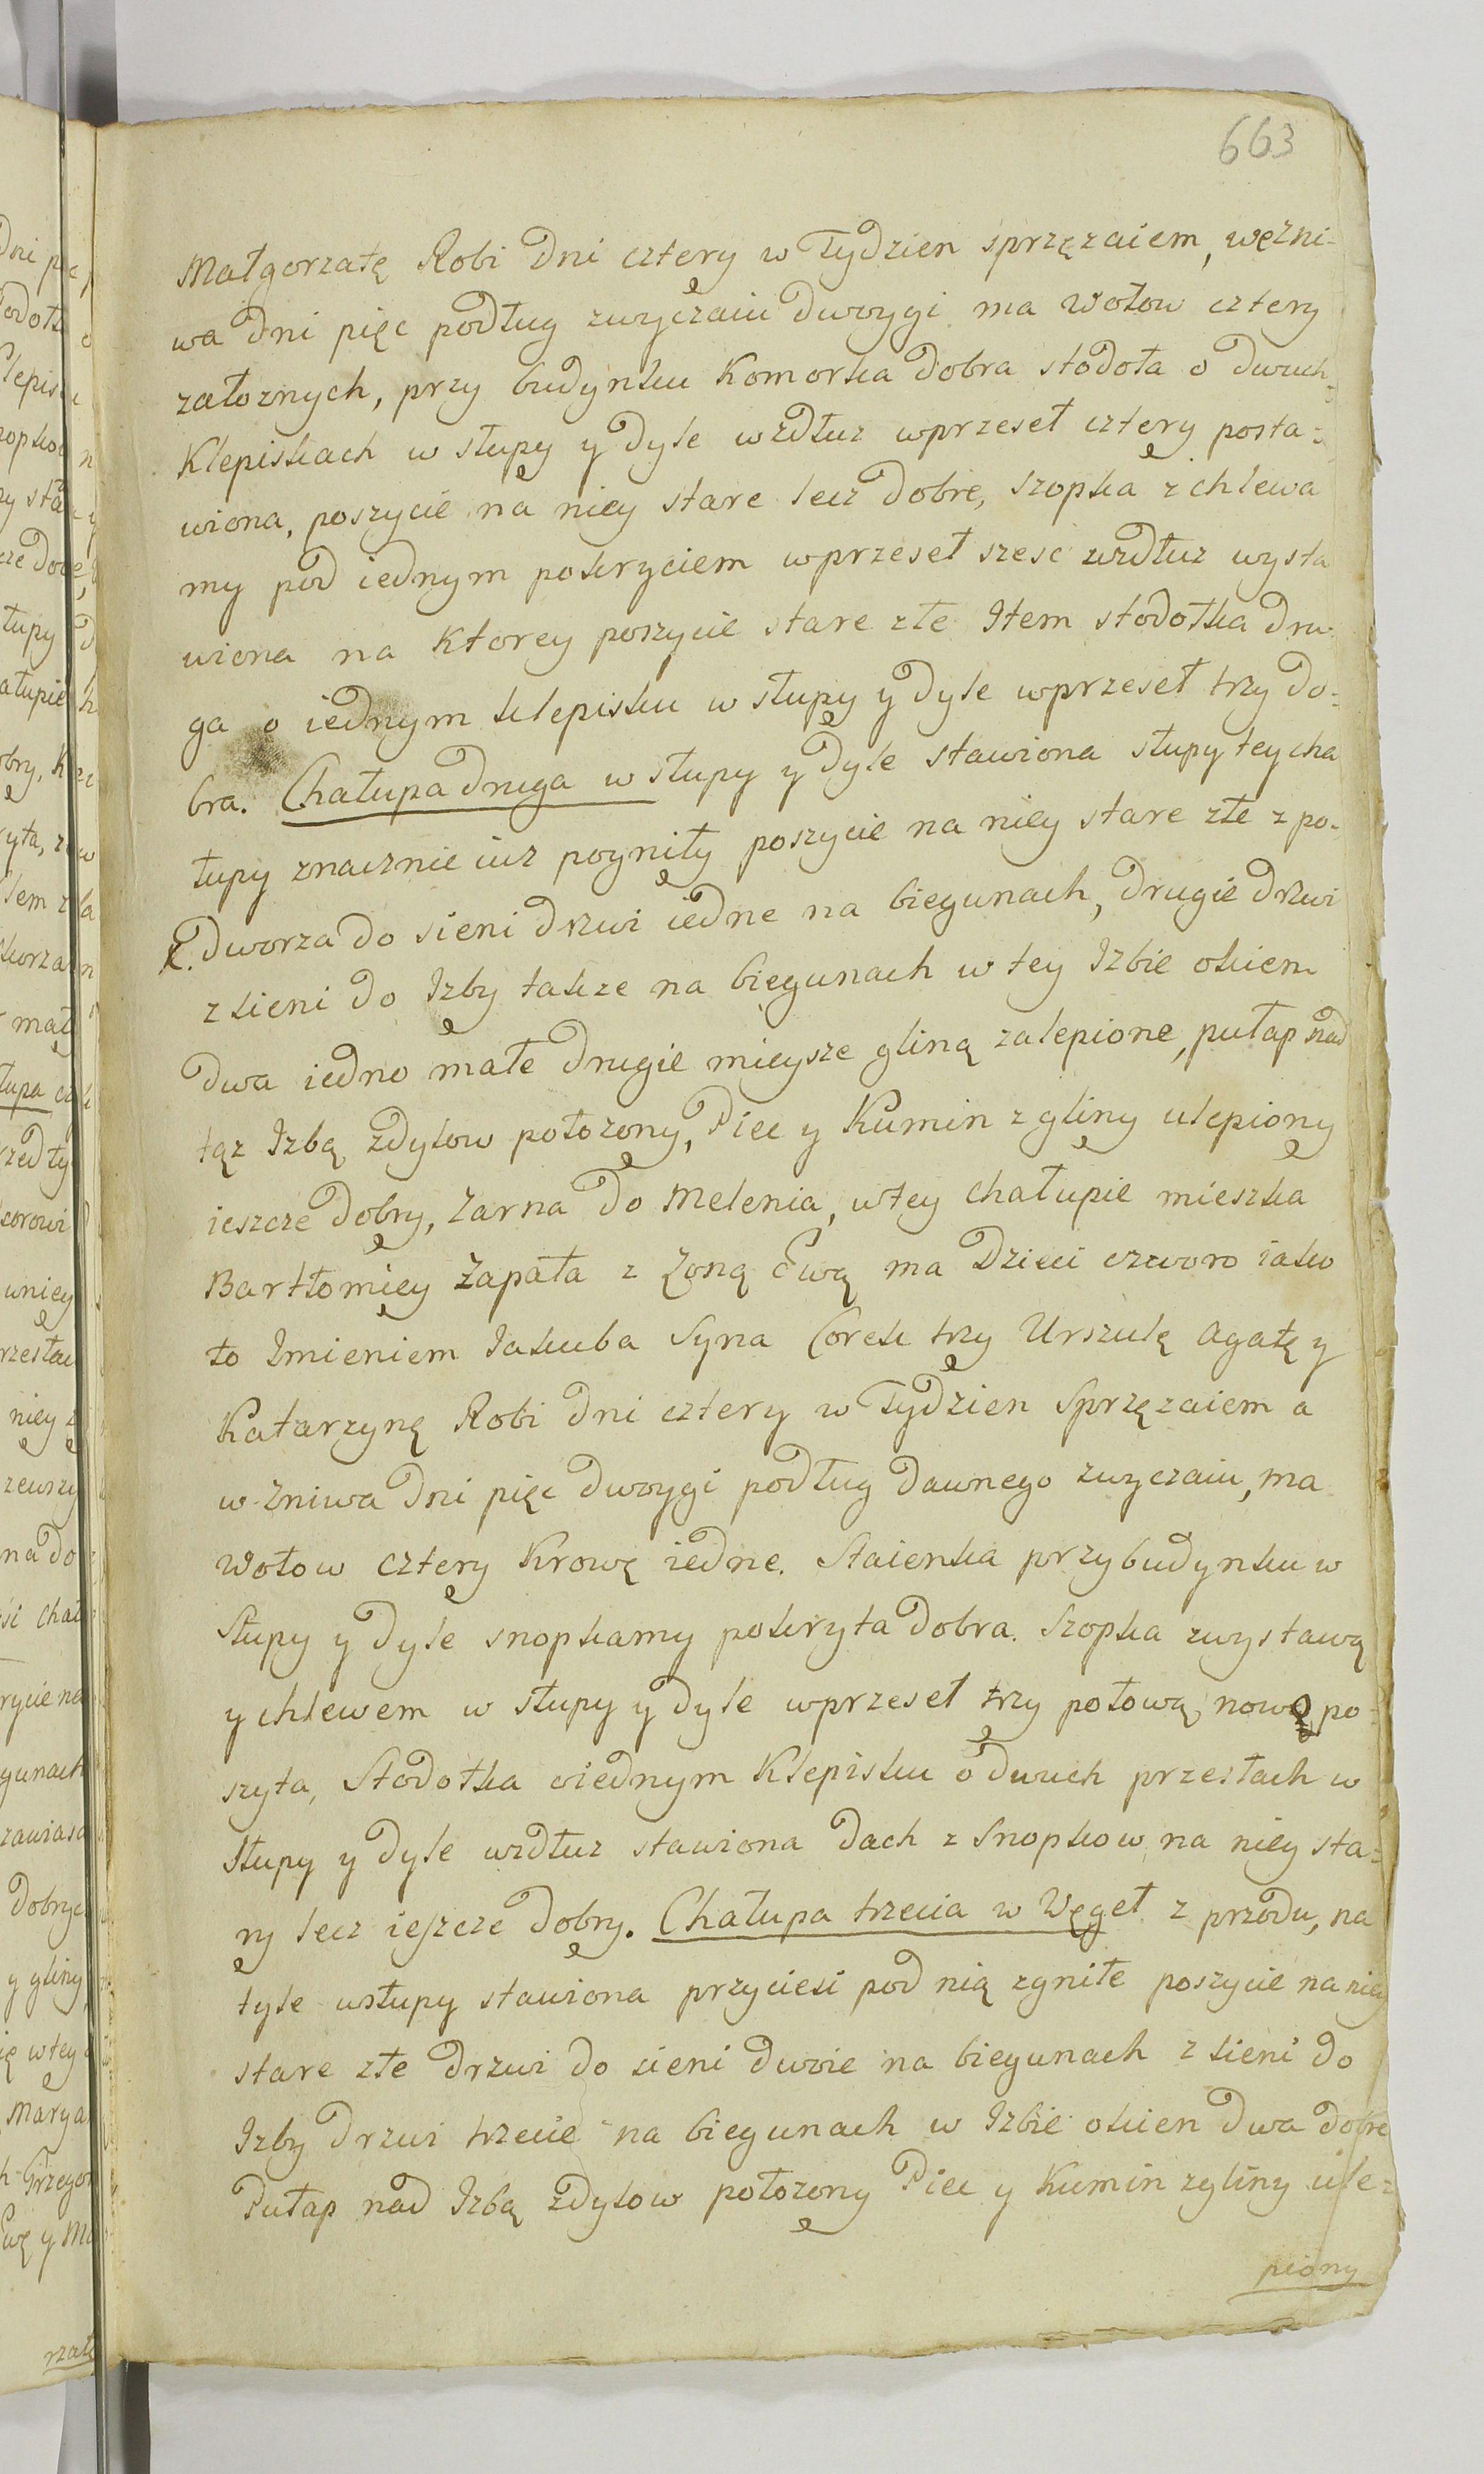 663
Małgorzatę Robi Dni cztery w Tydzien sprzęzaiem, wężni-
wa Dni pięc podług zwyczaiu dwoygi ma Wołow cztery
załoznych, przy budynku Komorka Dobra stodoła o dwuch-
Klepiskach w słupy y dyle wzdłuz wprzeseł cztery posta-
wiona, poszycie na niey stare lecz dobre, szopka z chlewa
my pod iednym pokryciem wprzeseł szesc wzdłuz wysta
wiona na ktorey poszycie stare złe Item stodołka dru-
ga o iednym klepisku w słupy y dyle wprzeseł trzy do-
bra. Chałupa druga w słupy y dyle stawiona słupy tey cha
łupy znacznie iuz pogniły poszycie na niey stare złe z po-
dworza do sieni drzwi iedne na biegunach, drugie drzwi
z sieni do Izby takze na biegunach w tey Izbie okien
dwa iedno małe drugie mieysze gliną zalepione, pułap nad
tąz Izbą zdylow połozony, Piec y Kumin z gliny ulepiony
ieszcze dobry, Zarna do Melenia, wtey chałupie mieszka
Bartłomiey Zapała z Zoną Ewą ma Dzieci czworo iako
to Imieniem Iakuba Syna Corek trzy Urszulę Agatę y
Katarzynę Robi Dni cztery w Tydzien Sprzęzaiem a
w Zniwa Dni pięc Dwoygi podług dawnego zwyczaiu, ma
Wołow cztery Krowę iednę. Staienka przy budynku w
Słupy y dyle snopkamy pokryta dobra. Szopka zwystawą
y chlewem w słupy y dyle wprzeseł trzy połową nową po-
szyta, Stodołka oiednym Klepisku o dwuch przesłach w
słupy y dyle wzdłuz stawiona Dach z Snopkow na niey sta-
ry lecz ieszcze dobry. Chałupa trzecia w Węgeł z przodu, na
tyle wsłupy stawiona przyciesi pod nią zgniłe poszycie na niey
stare złe drzwi do sieni dwoie na biegunach z sieni do
Izby drzwi trzecie na biegunach w Izbie okien dwa dobre
Pułap nad Izbą zdylow połozony Piec y Kumin zgliny ule-
piony